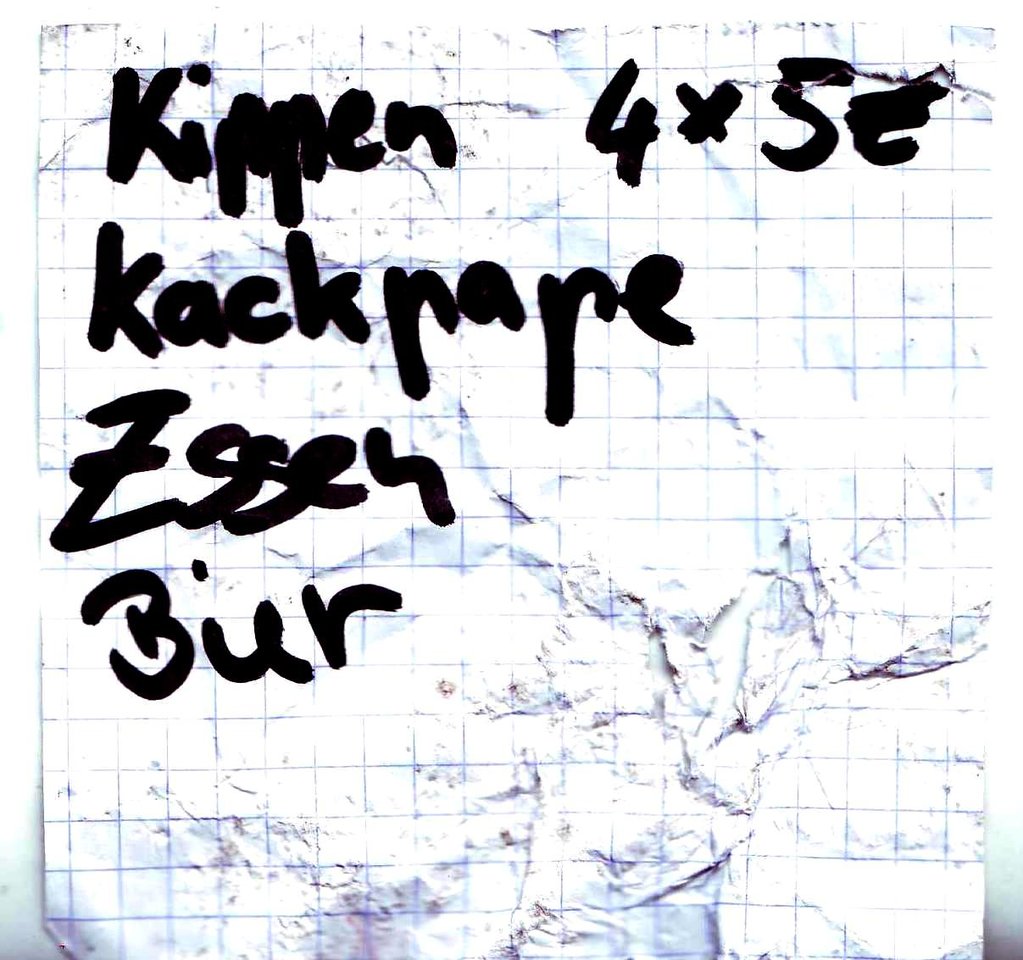 Kippen 4x5€
Kackpape
Essen
Bier